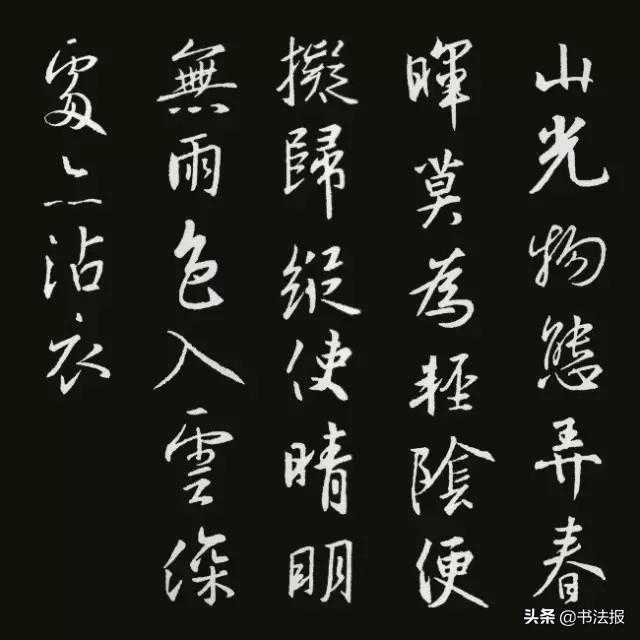 山光物態弄春
暉莫為輕陰便
擬歸縱使晴明
無雨色入雲深
處亦沾衣
头条 @书法报